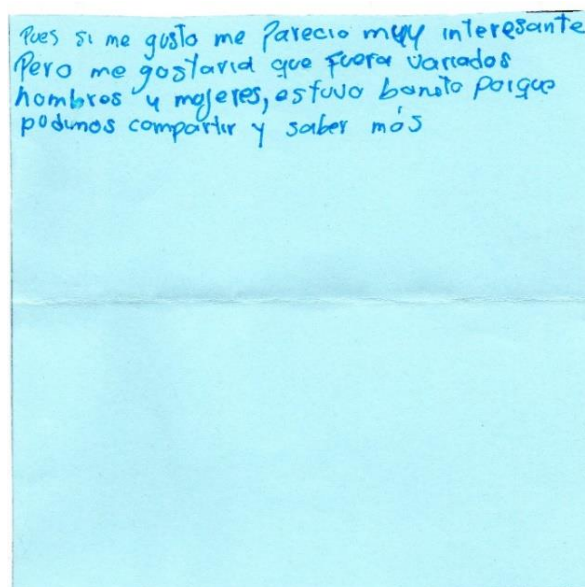 Pues si me gusto me Parecio muy interesante
Pero me gostaria que fuera variados
hombres y mojeres, estuvo bonito porque
podimos compartir y saber más